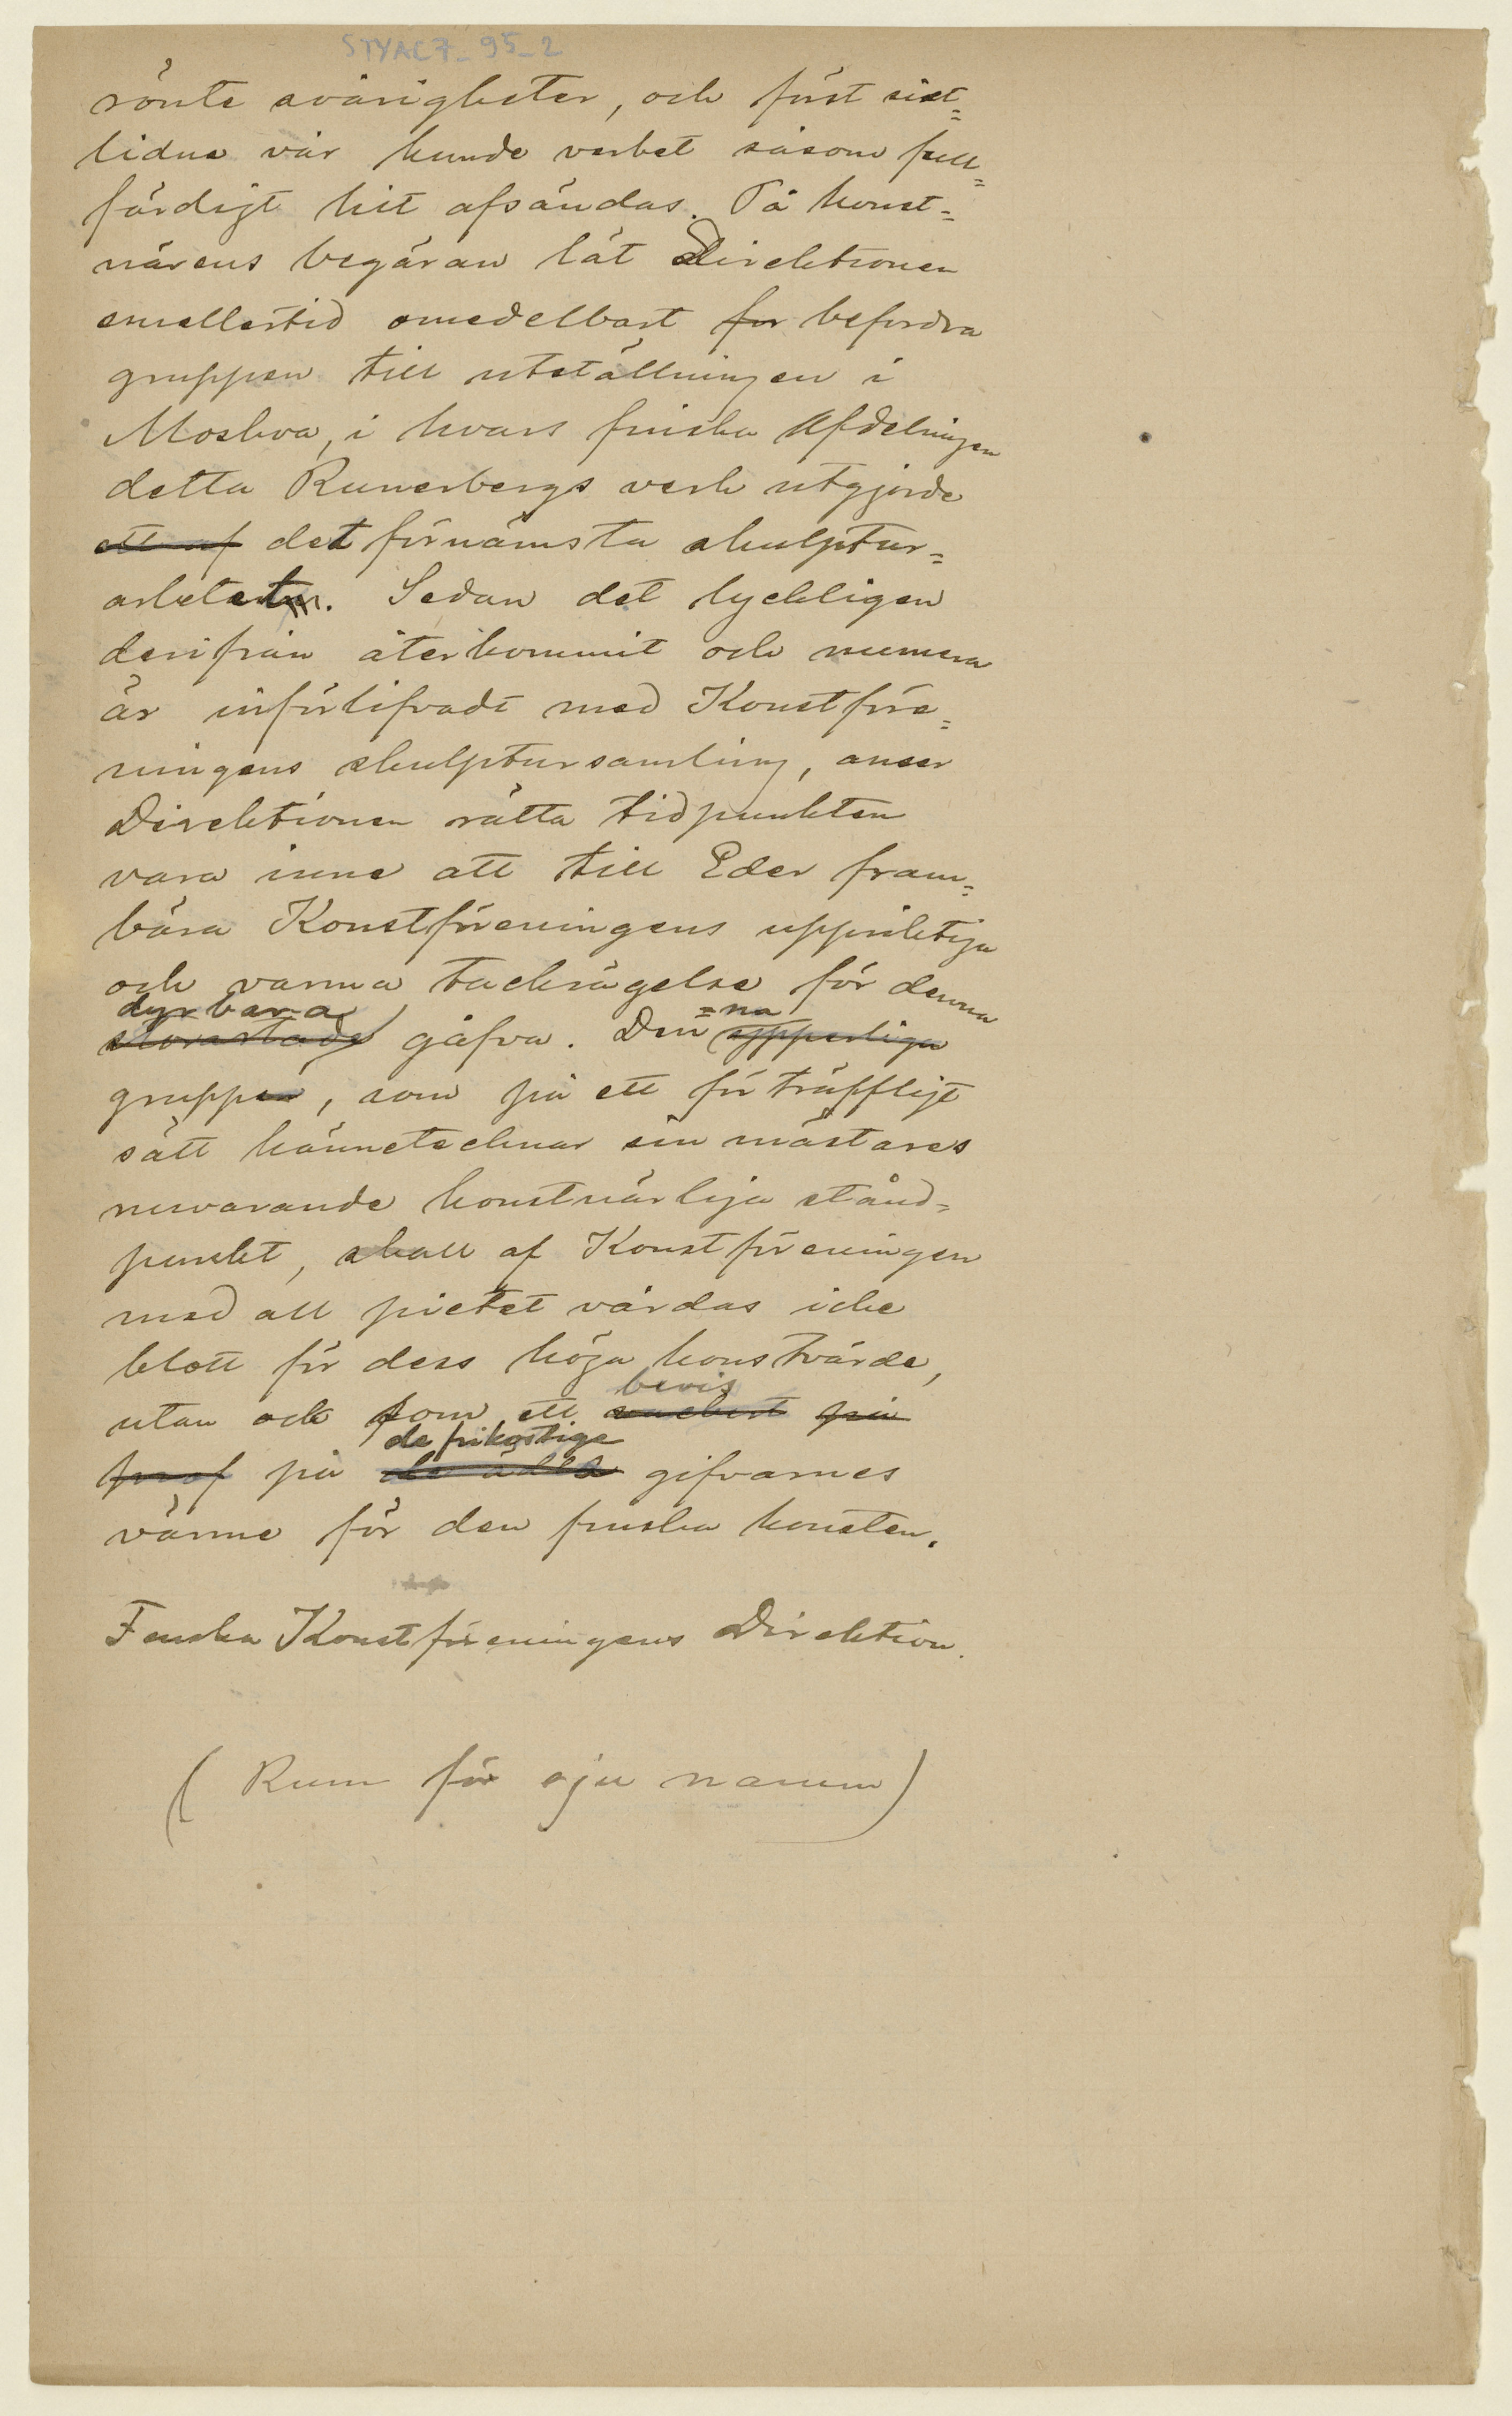 STYAC7_95_2
rönte svårigheter, och först sist=
lidne vår kunde verket såsom full=
färdigt hit afsändas. På konst=
närens begäran lät Direktionen
emellertid omedelbart for befordra
gruppen till utställningen i
Moskva, i hvars finska Afdelningen
detta Runerbergs verk utgjorde
ett af det förnämsta skulptur=
arbetet. Sedan det lyckligen
derifrån återkommit och numera
är införlifvadt med Konstföre=
ningens skulptursamling, anser
Direktionen rätta tidpunkten
vara inne att till Eder fram=
bära Konstföreningens uppriktiga
och varma tacksägelse för denna
dyrbara
storartade gåfva. Den =na ypperliga
gruppen, som på ett förträffligt
sätt kännetecknar sin mästares
nuvarande konstnärliga stånd=
punkt, skall af Konstföreningen
med all pietet vårdas icke
blott för dess höga konstvärde,
bevis
utan ock som ett vackert
de frikostige
prof på de ädla gifvarnes
värme för den finska konsten.
Finska Konstföreningens Direktion.
(Rum för sju namn)